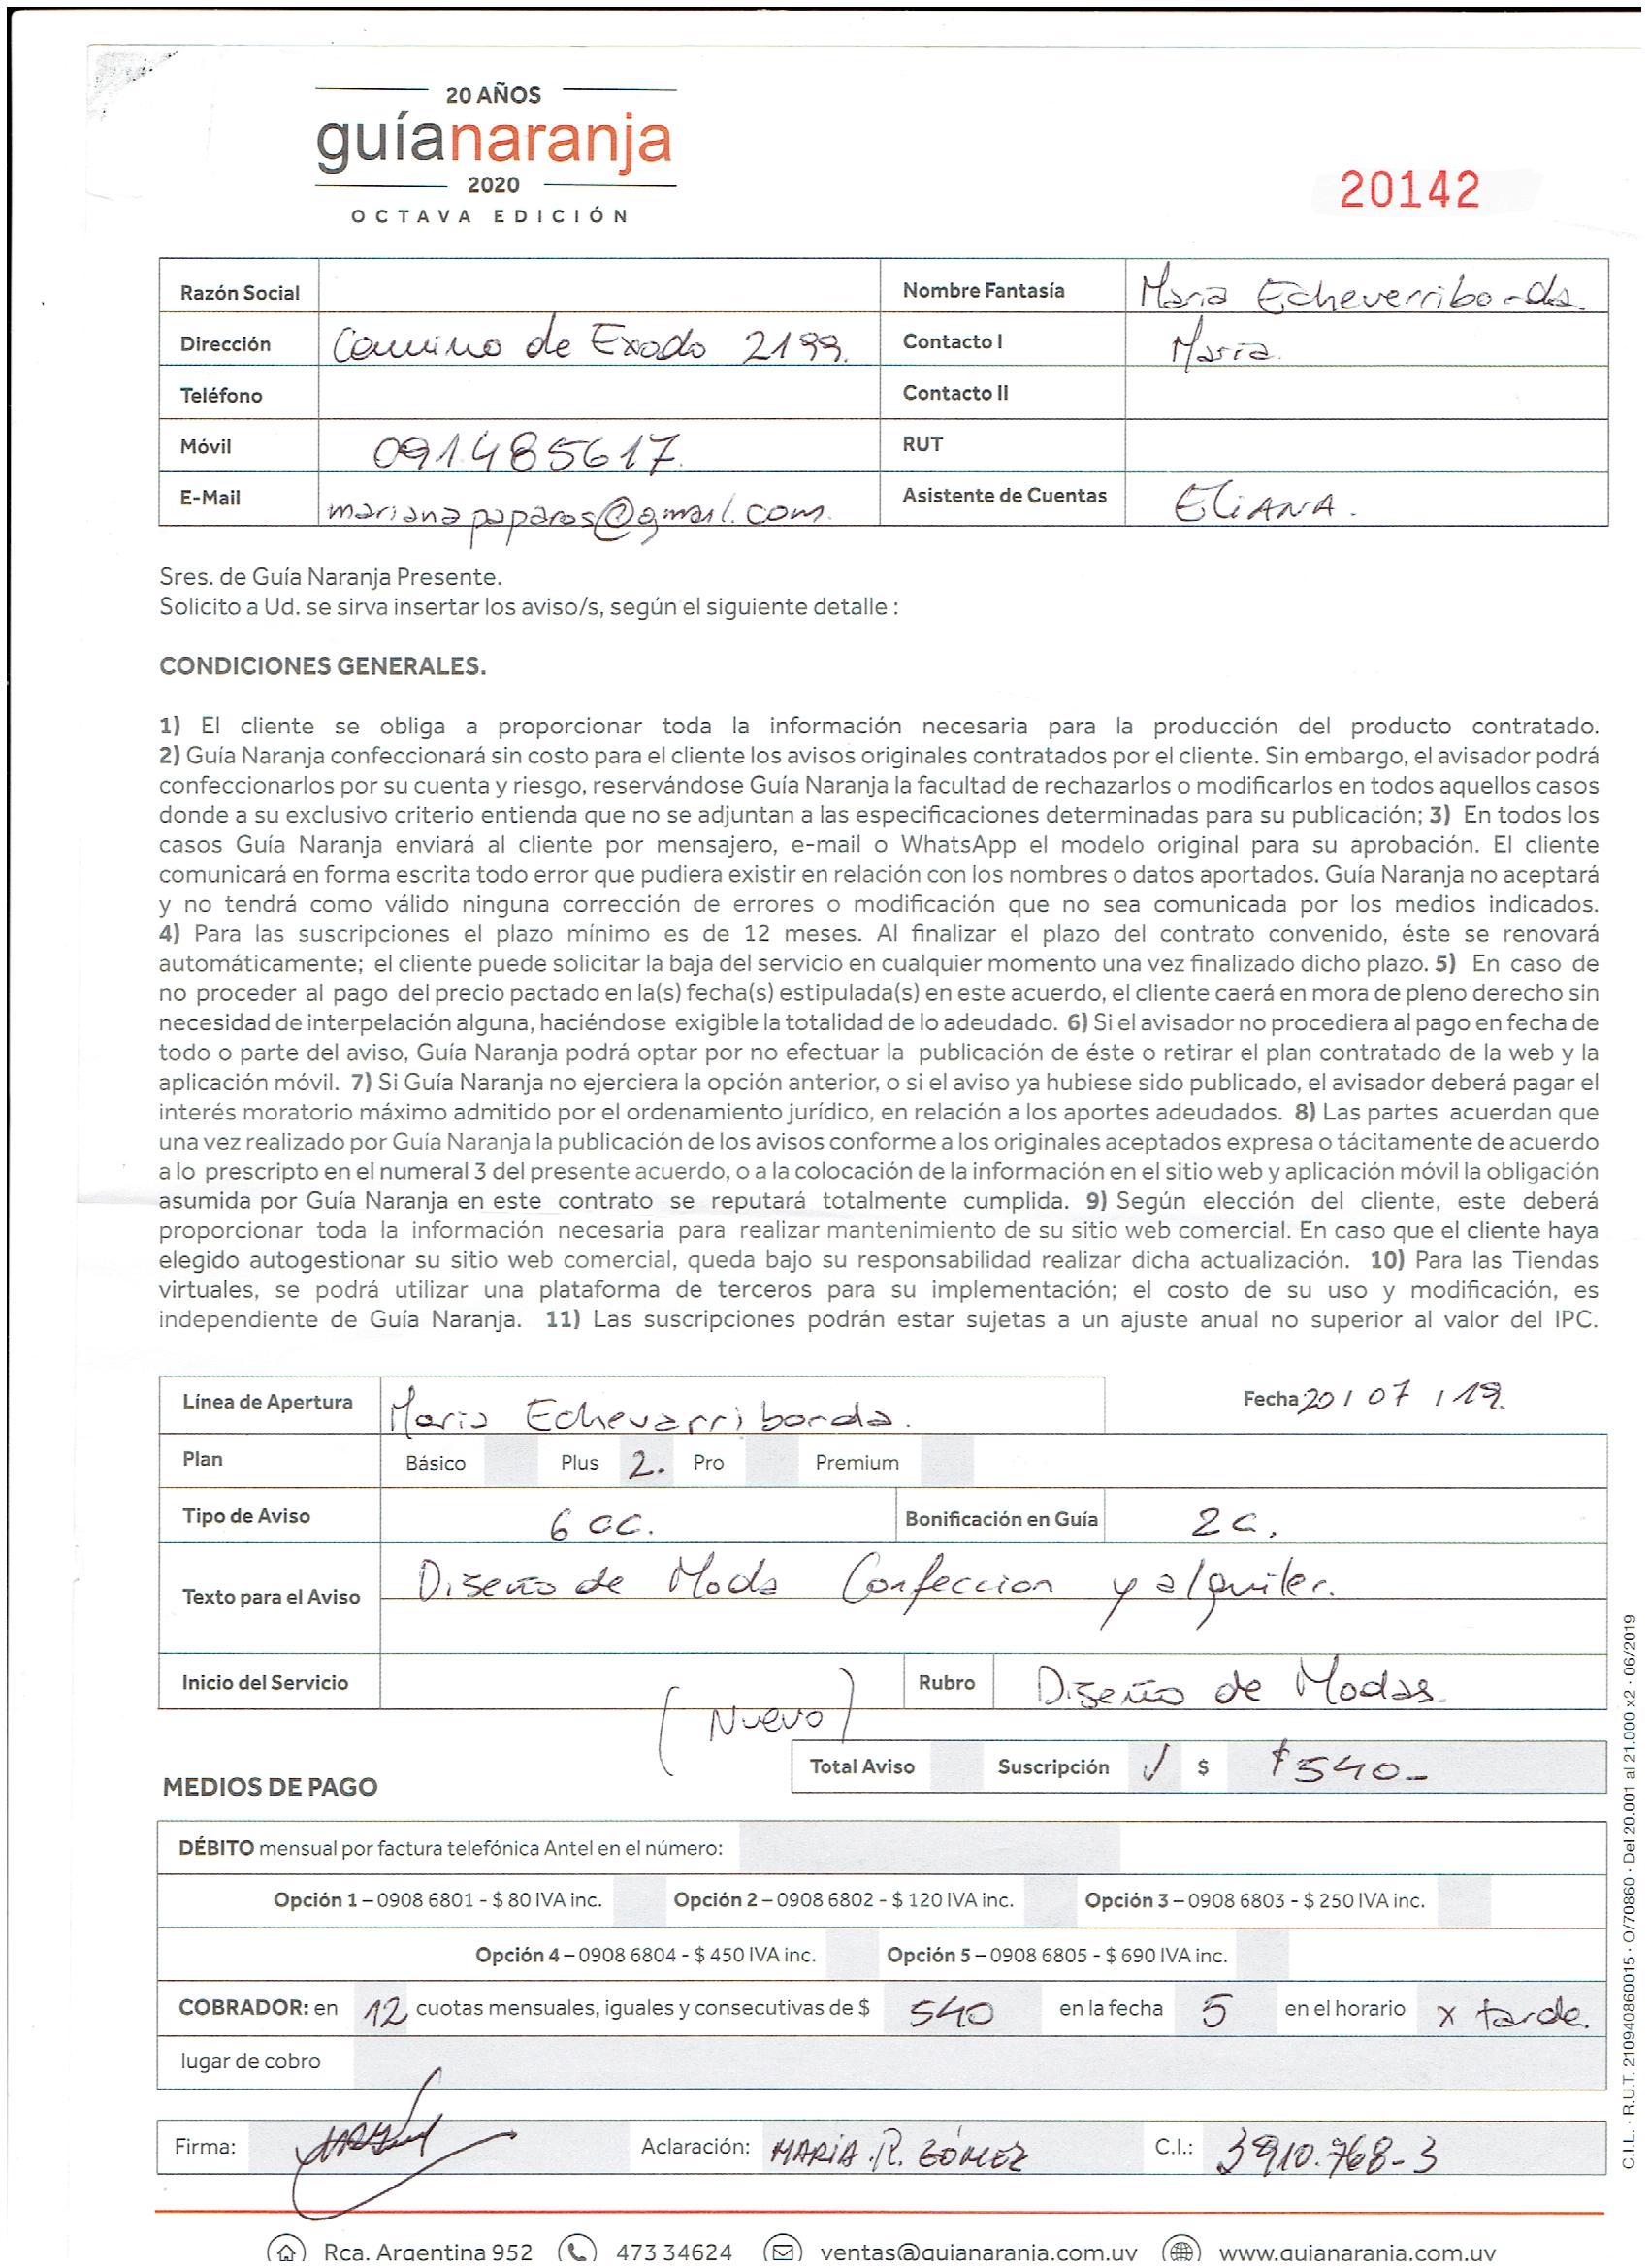 20 AÑOS
guíanaranja
2020
OCTAVA EDICIÓN
20142
Razón Social
Nombre Fantasía Maria Echeverriborda.
Dirección Camino de Exodo 2199.
Contacto I Maria.
Teléfono
Contacto II
Móvil 091485617.
RUT
E-Mail marianapaparos@gmail.com.
Asistente de Cuentas ELIANA.
Sres. de Guía Naranja Presente.
Solicito a Ud. se sirva insertar los aviso/s, según el siguiente detalle :
CONDICIONES GENERALES.
1) El cliente se obliga a proporcionar toda la información necesaria para la producción del producto contratado.
2) Guía Naranja confeccionará sin costo para el cliente los avisos originales contratados por el cliente. Sin embargo, el avisador podrá
confeccionarlos por su cuenta y riesgo, reservándose Guía Naranja la facultad de rechazarlos o modificarlos en todos aquellos casos
donde a su exclusivo criterio entienda que no se adjuntan a las especificaciones determinadas para su publicación; 3) En todos los
casos Guía Naranja enviará al cliente por mensajero, e-mail o WhatsApp el modelo original para su aprobación. El cliente
comunicará en forma escrita todo error que pudiera existir en relación con los nombres o datos aportados. Guía Naranja no aceptará
y no tendrá como válido ninguna corrección de errores o modificación que no sea comunicada por los medios indicados.
4) Para las suscripciones el plazo mínimo es de 12 meses. Al finalizar el plazo del contrato convenido, éste se renovará
automáticamente; el cliente puede solicitar la baja del servicio en cualquier momento una vez finalizado dicho plazo. 5) En caso de
no proceder al pago del precio pactado en la(s) fecha(s) estipulada(s) en este acuerdo, el cliente caerá en mora de pleno derecho sin
necesidad de interpelación alguna, haciéndose exigible la totalidad de lo adeudado. 6) Si el avisador no procediera al pago en fecha de
todo o parte del aviso, Guía Naranja podrá optar por no efectuar la publicación de éste o retirar el plan contratado de la web y la
aplicación móvil. 7) Si Guía Naranja no ejerciera la opción anterior, o si el aviso ya hubiese sido publicado, el avisador deberá pagar el
interés moratorio máximo admitido por el ordenamiento jurídico, en relación a los aportes adeudados. 8) Las partes acuerdan que
una vez realizado por Guía Naranja la publicación de los avisos conforme a los originales aceptados expresa o tácitamente de acuerdo
a lo prescripto en el numeral 3 del presente acuerdo, o a la colocación de la información en el sitio web y aplicación móvil la obligación
asumida por Guía Naranja en este contrato se reputará totalmente cumplida. 9) Según elección del cliente, este deberá
proporcionar toda la información necesaria para realizar mantenimiento de su sitio web comercial. En caso que el cliente haya
elegido autogestionar su sitio web comercial, queda bajo su responsabilidad realizar dicha actualización. 10) Para las Tiendas
virtuales, se podrá utilizar una plataforma de terceros para su implementación; el costo de su uso y modificación, es
independiente de Guía Naranja. 11) Las suscripciones podrán estar sujetas a un ajuste anual no superior al valor del IPC.
Línea de Apertura Maria Echevarriborda.
Fecha 20 / 07 / 19.
Plan Básico Plus 2. Pro Premium
Tipo de Aviso 6 cc. Bonificación en Guía 2c.
Texto para el Aviso Diseño de Moda Confeccion y alquiler.
Inicio del Servicio (Nuevo) Rubro Diseño de Modas.
Total Aviso Suscripción ✓ $ $540-
MEDIOS DE PAGO
DÉBITO mensual por factura telefónica Antel en el número:
Opción 1 – 0908 6801 - $ 80 IVA inc. Opción 2 – 0908 6802 - $ 120 IVA inc. Opción 3 – 0908 6803 - $ 250 IVA inc.
Opción 4 – 0908 6804 - $ 450 IVA inc. Opción 5 – 0908 6805 - $ 690 IVA inc.
COBRADOR: en 12 cuotas mensuales, iguales y consecutivas de $ 540 en la fecha 5 en el horario x tarde.
lugar de cobro
Firma: Aclaración: MARIA .R. GÓMEZ C.I.: 3910.768-3
Rca. Argentina 952 473 34624 ventas@guianaranja.com.uy www.guianaranja.com.uy
C.I.L. · R.U.T. 210940860015 · O/70860 · Del 20.001 al 21.000 x2 · 06/2019